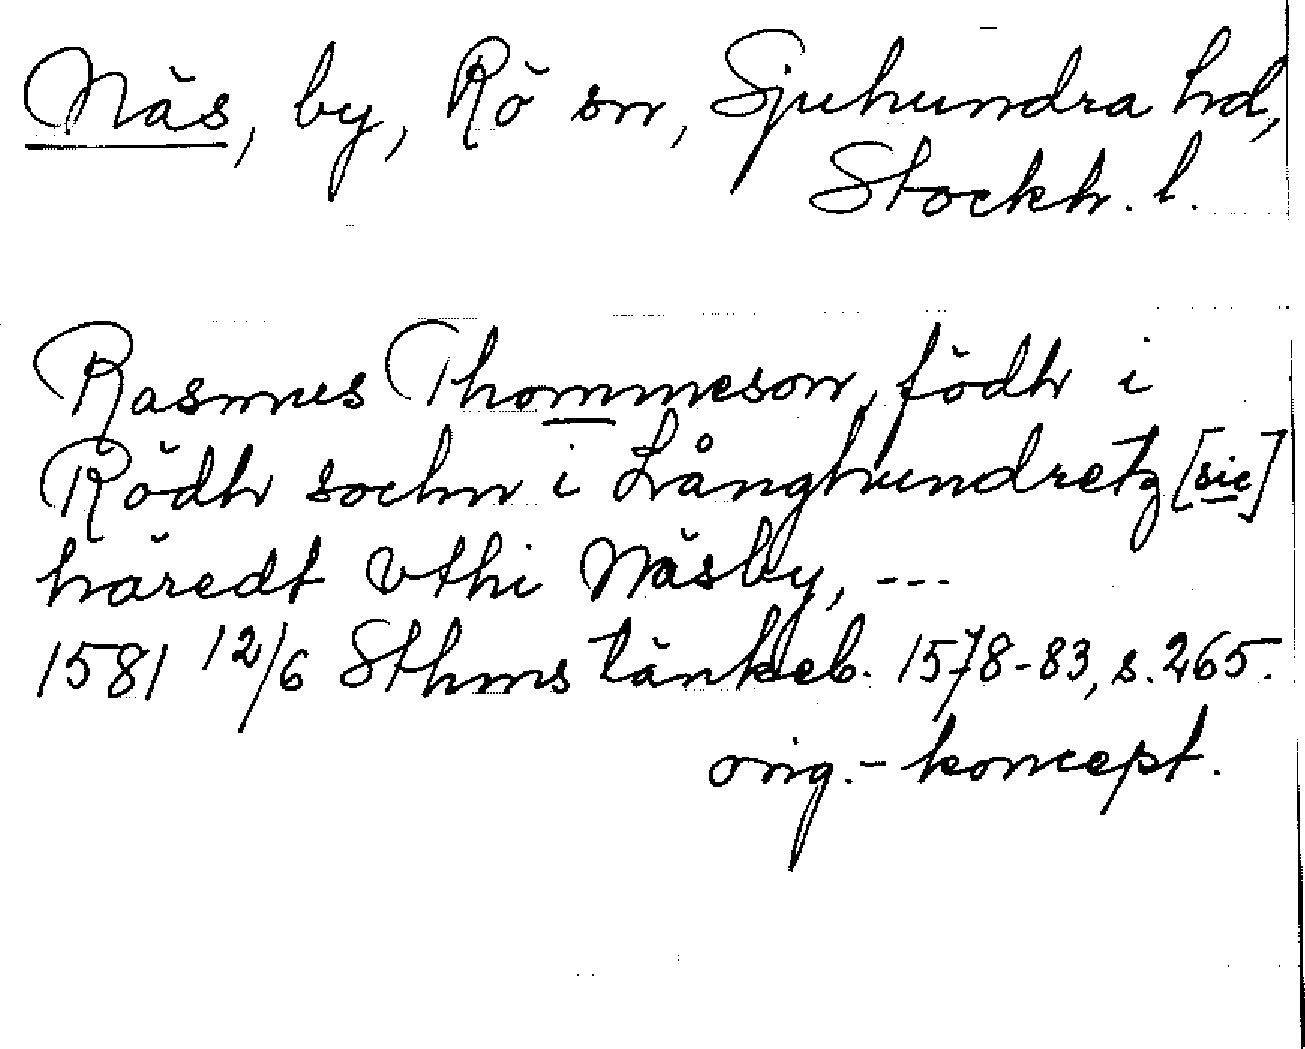 Näs, by, Rö sn, Sjuhundra hd,
Stockh. l.
Rasmus Thommeson, födh i
Rödh sochn i Långhundretz [sic]
häredt vthi Näsby, ---
1581 12/6 Sthms tänkeb. 1578-83, s. 265.
orig.- koncept.